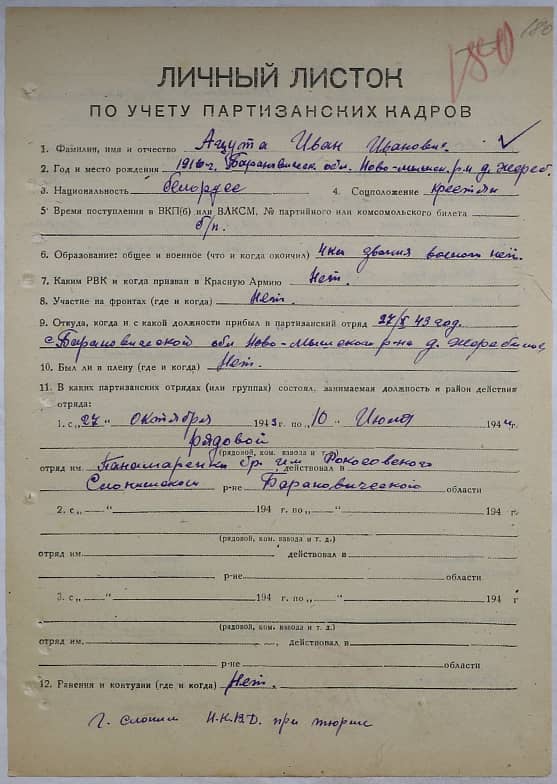 180
180
ЛИЧНЫЙ ЛИСТОК
ПО УЧЕТУ ПАРТИЗАНСКИХ КАДРОВ
1. Фамилия, имя и отчество Ацута Иван Иванович
2. Год и место рождения 1916 г. Барановическ. обл. Ново-мышск. р-н д. Жереб.
3. Национальность белорусс 4. Соцположение крестьян
5. Время поступления в ВКП(б) или ВЛКСМ, № партийного или комсомольского билета
б/п.
6. Образование: общее и военное (что и когда окончил) 4 кл звания военого нет.
7. Каким РВК и когда призван в Красную Армию Нет.
8. Участие на фронтах (где и когда) Нет.
9. Откуда, когда и с какой должности прибыл в партизанский отряд 27/X 43 год.
с Барановической обл. Ново-Мышского р-на д.
10. Был ли в плену (где и когда) Нет.
11. В каких партизанских отрядах (или группах) состоял, занимаемая должность и район действия
отряда:
1. с „27 октября 1943 г. по „10 " Июля 1944 г.
рядовой
(рядовой, ком. взвода и т. д.)
отряд им. Панамаренки бр. им Рокосовского действовал в
Слонимском р-не Барановической области
2. с „ — " 194 г. по „ — " 194 г.
(рядовой, ком. взвода и т. д.)
отряд им. действовал в
р-не области
3. с „ — " 194 г. по „ — " 194 г
(рядовой, ком. взвода и т. д.)
отряд им. , действовал в
р-не области
12. Ранения и контузии (где и когда) Нет.
г. слоним Н.К.В.Д. при тюрме